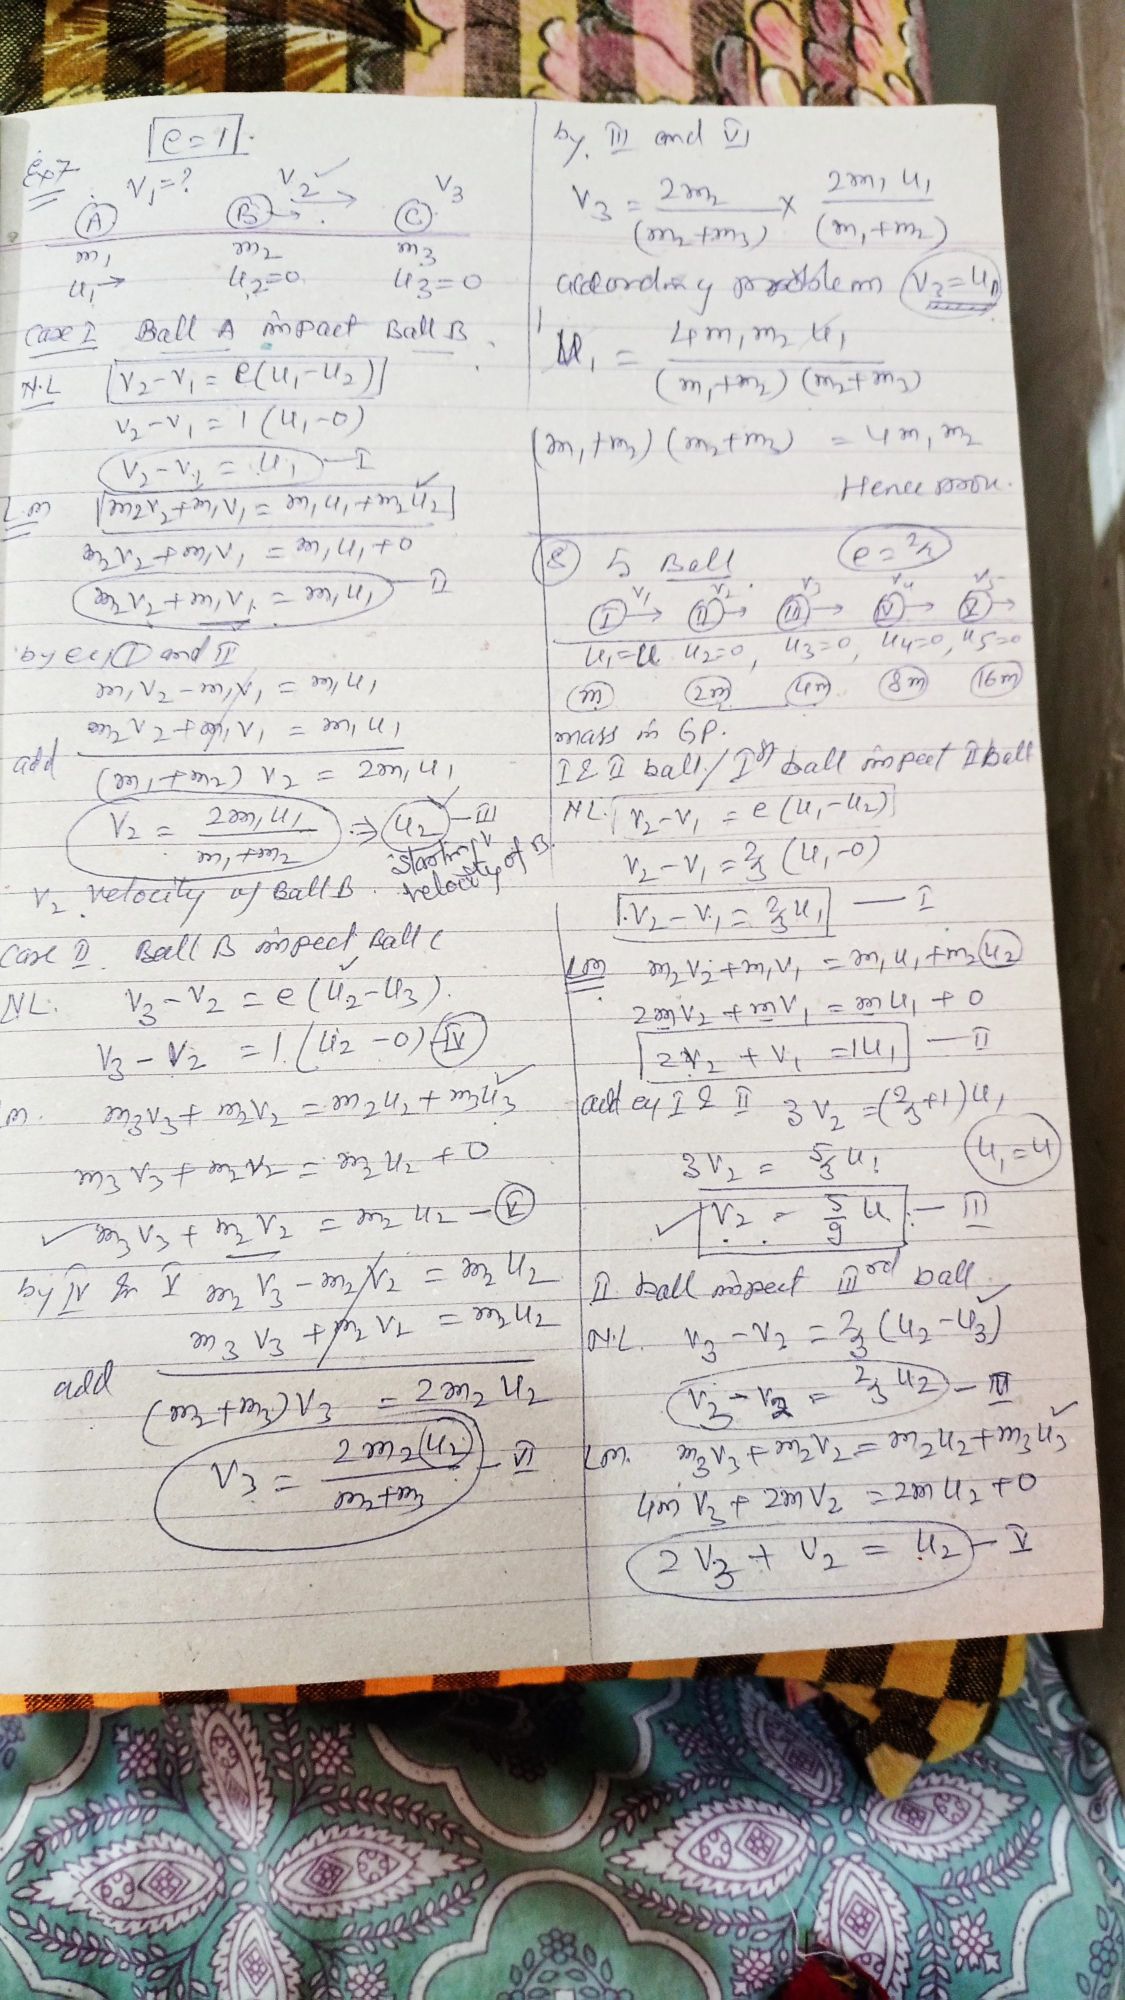 e=1.
Ex7
V₁=? V₂ V₃
A B C
m₁ m₂ m₃
u₁→ u₂=0 u₃=0
Case I Ball A impact Ball B.
N.L V₂-V₁ = e(u₁-u₂)
V₂-V₁ = 1 (u₁-0)
V₂-V₁ = u₁ — I
L.m m₂V₂+m₁V₁ = m₁u₁+m₂u₂
m₂V₂+m₁V₁ = m₁u₁+0
m₂V₂+m₁V₁ = m₁u₁ — II
by eq I and II
m₁V₂-m₁V₁ = m₁u₁
m₂V₂+m₁V₁ = m₁u₁
add (m₁+m₂) V₂ = 2m₁u₁
V₂ = 2m₁u₁/m₁+m₂ ⇒ u₂ — III
starting velocity of B.
V₂ velocity of Ball B.
Case II Ball B inpect Ball C
NL. V₃-V₂ = e(u₂-u₃).
V₃-V₂ = 1.(u₂-0) IV
m. m₃V₃+m₂V₂ = m₂u₂+m₃u₃
m₃V₃+m₂V₂ = m₂u₂+0
✓ m₃V₃+m₂V₂ = m₂u₂ — V
by IV & V m₂V₃-m₂V₂ = m₂u₂
m₃V₃+m₂V₂ = m₂u₂
add (m₂+m₃)V₃ = 2m₂u₂
V₃ = 2m₂u₂/m₂+m₃ — VI
by III and VI
V₃ = 2m₂/(m₂+m₃) × 2m₁u₁/(m₁+m₂)
according problem V₃=u₁
u₁ = 4m₁m₂u₁/(m₁+m₂)(m₂+m₃)
(m₁+m₂)(m₂+m₃) = 4m₁m₂
Hence prov.
8 5 Ball e=2/3
V₁ V₂ V₃ V₄ V₅
I → II → III → IV → V →
u₁=u u₂=0, u₃=0, u₄=0, u₅=0
m 2m 4m 8m 16m
mass in GP.
I & II ball/Ist ball inpect II ball
NL. V₂-V₁ = e(u₁-u₂)
V₂-V₁ = 2/3(u₁-0)
V₂-V₁ = 2/3u₁ — I
Lm m₂V₂+m₁V₁ = m₁u₁+m₂u₂
2mV₂+mV₁ = mu₁+0
2V₂+V₁ = 1u₁ — II
add eq I & II 3V₂ = (2/3+1)u₁
3V₂ = 5/3u₁ u₁=u
✓ V₂ = 5/9 u — III
II ball inpect IIIrd ball.
N.L. V₃-V₂ = 2/3(u₂-u₃)
V₃-V₂ = 2/3u₂ — IV
Lm. m₃V₃+m₂V₂ = m₂u₂+m₃u₃
4mV₃+2mV₂ = 2mu₂+0
2V₃+V₂ = u₂ — V